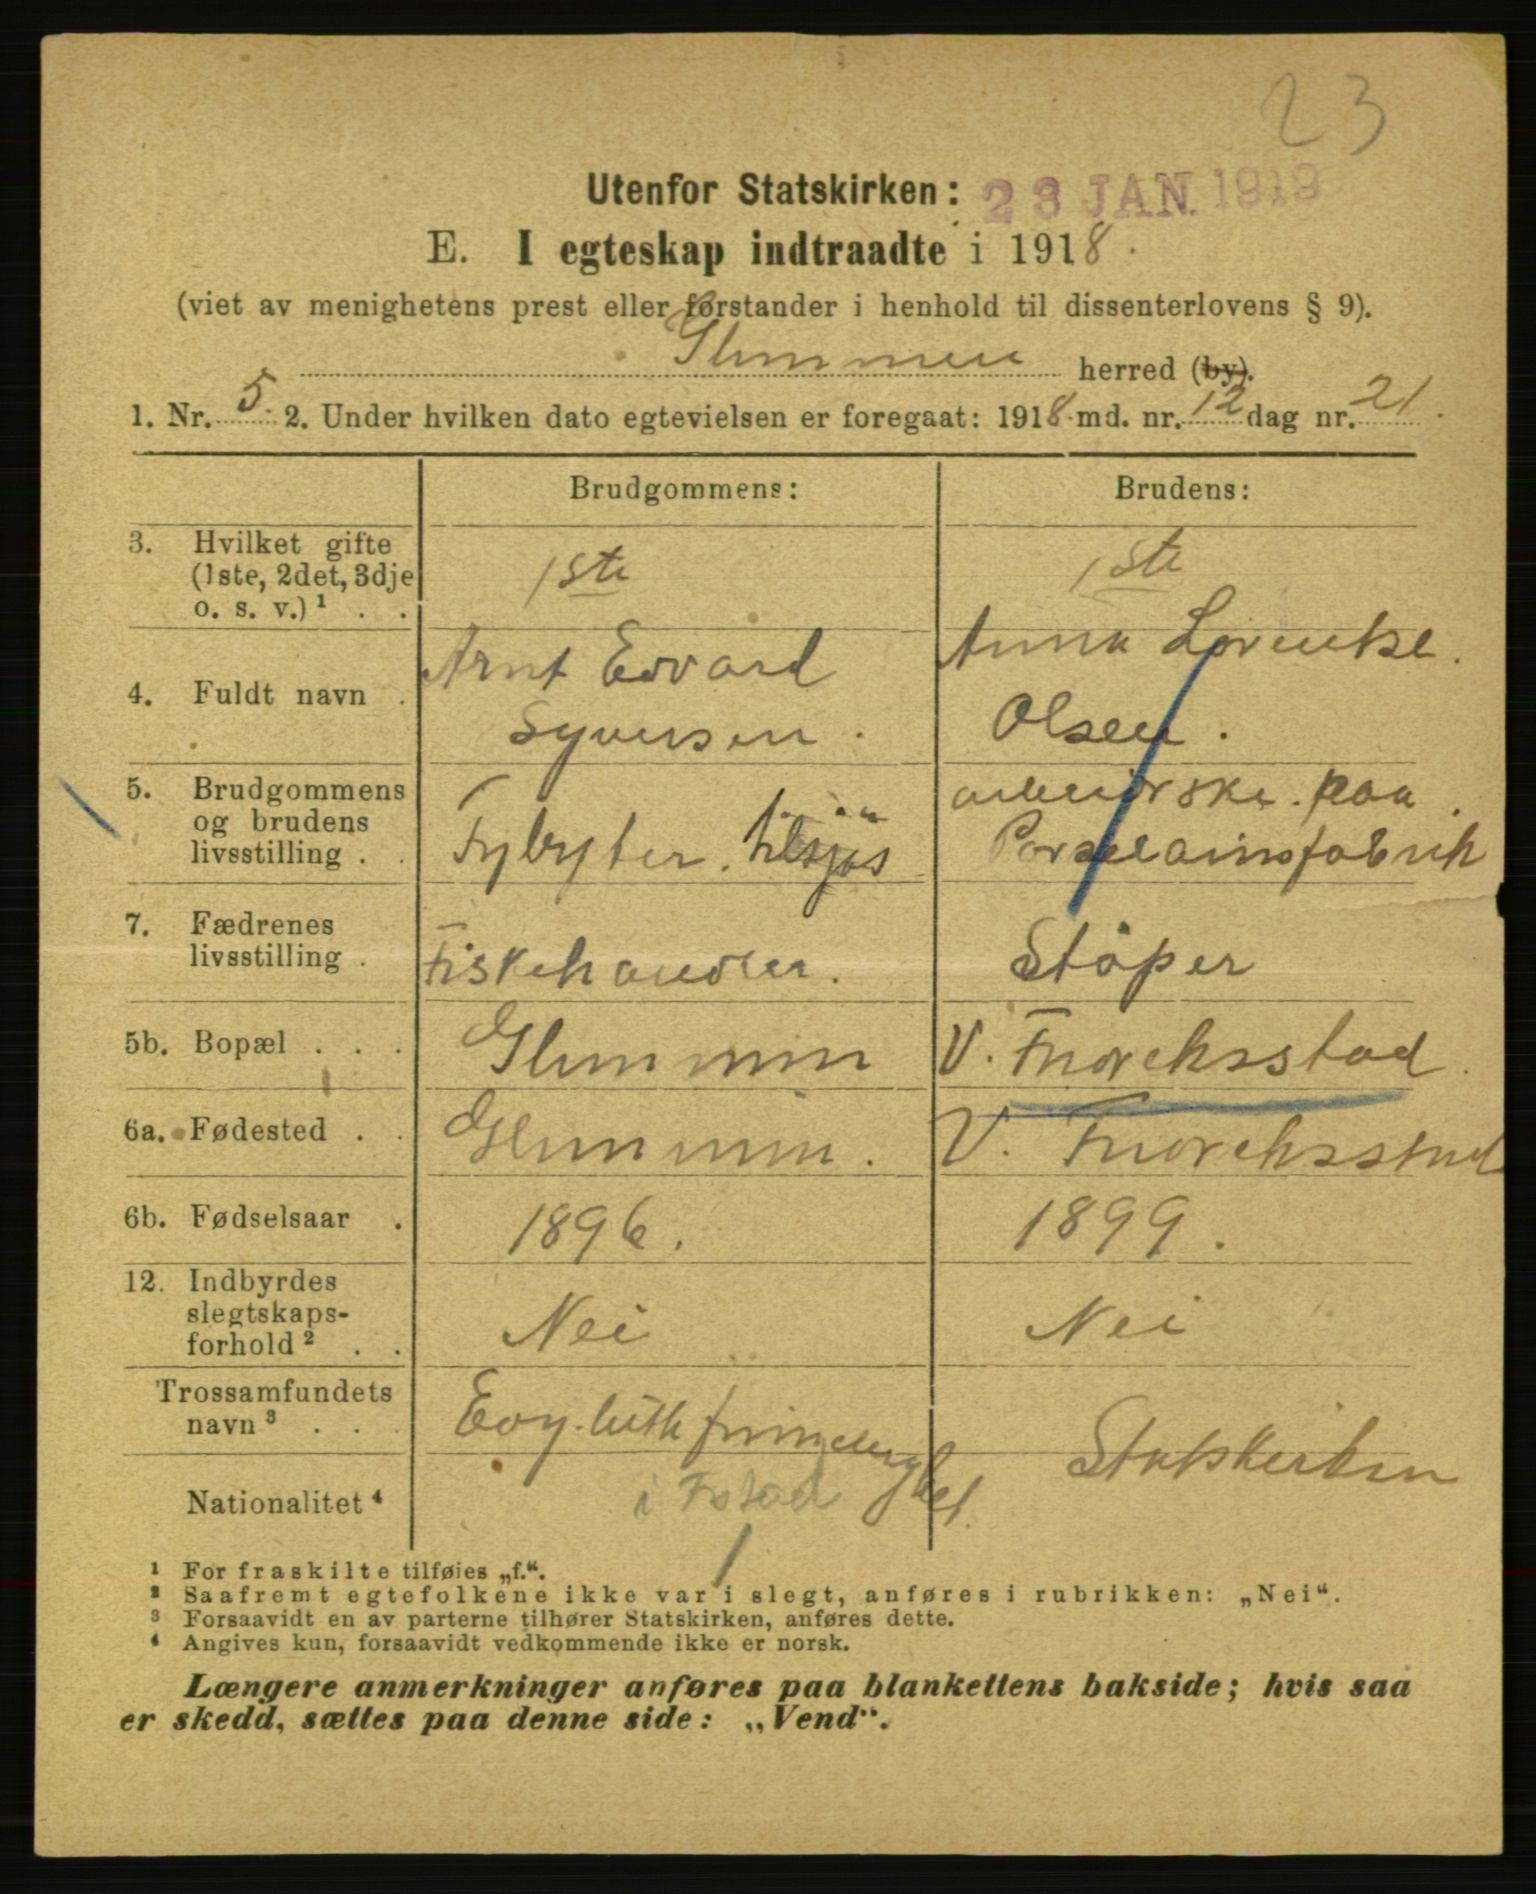 23
Utenfor Statskirken: 23 JAN. 1919
E. I egteskap indtraadte i 1918.
(viet av menighetens prest eller forstander i henhold til dissenterlovens § 9).
Glemmen herred (by).
1. Nr. 5. 2. Under hvilken dato egtevielsen er foregaat: 1918 md. nr. 12 dag nr. 21.
Brudgommens: Brudens:
3. Hvilket gifte
(1ste, 2det, 3dje
o. s. v.) ¹ . .
1ste 1ste
4. Fuldt navn .
Arnt Edvard
Syversen.
Anna Loventse.
Olsen.
5. Brudgommens
og brudens
livsstilling . .
Fyrbyter. tilsjøs
arbeiderske. paa
Porselainsfabrik
7. Fædrenes
livsstilling .
Fiskehandler. Støper
5b. Bopæl . . . Glemmen V. Fredreksstad.
6a. Fødested . . Glemmen. V. Fredreksstad
6b. Fødselsaar . 1896. 1899.
12. Indbyrdes
slegtskaps-
forhold ² . .
Nei Nei
Trossamfundets
navn ³ . . .
Evg. luth frimenighet.
i Fstad
Statskirken
Nationalitet ⁴
¹ For fraskilte tilføies „f.“.
² Saafremt egtefolkene ikke var i slegt, anføres i rubrikken: „Nei“.
³ Forsaavidt en av parterne tilhører Statskirken, anføres dette.
⁴ Angives kun, forsaavidt vedkommende ikke er norsk.
Længere anmerkninger anføres paa blankettens bakside; hvis saa
er skedd, sættes paa denne side: „Vend“.